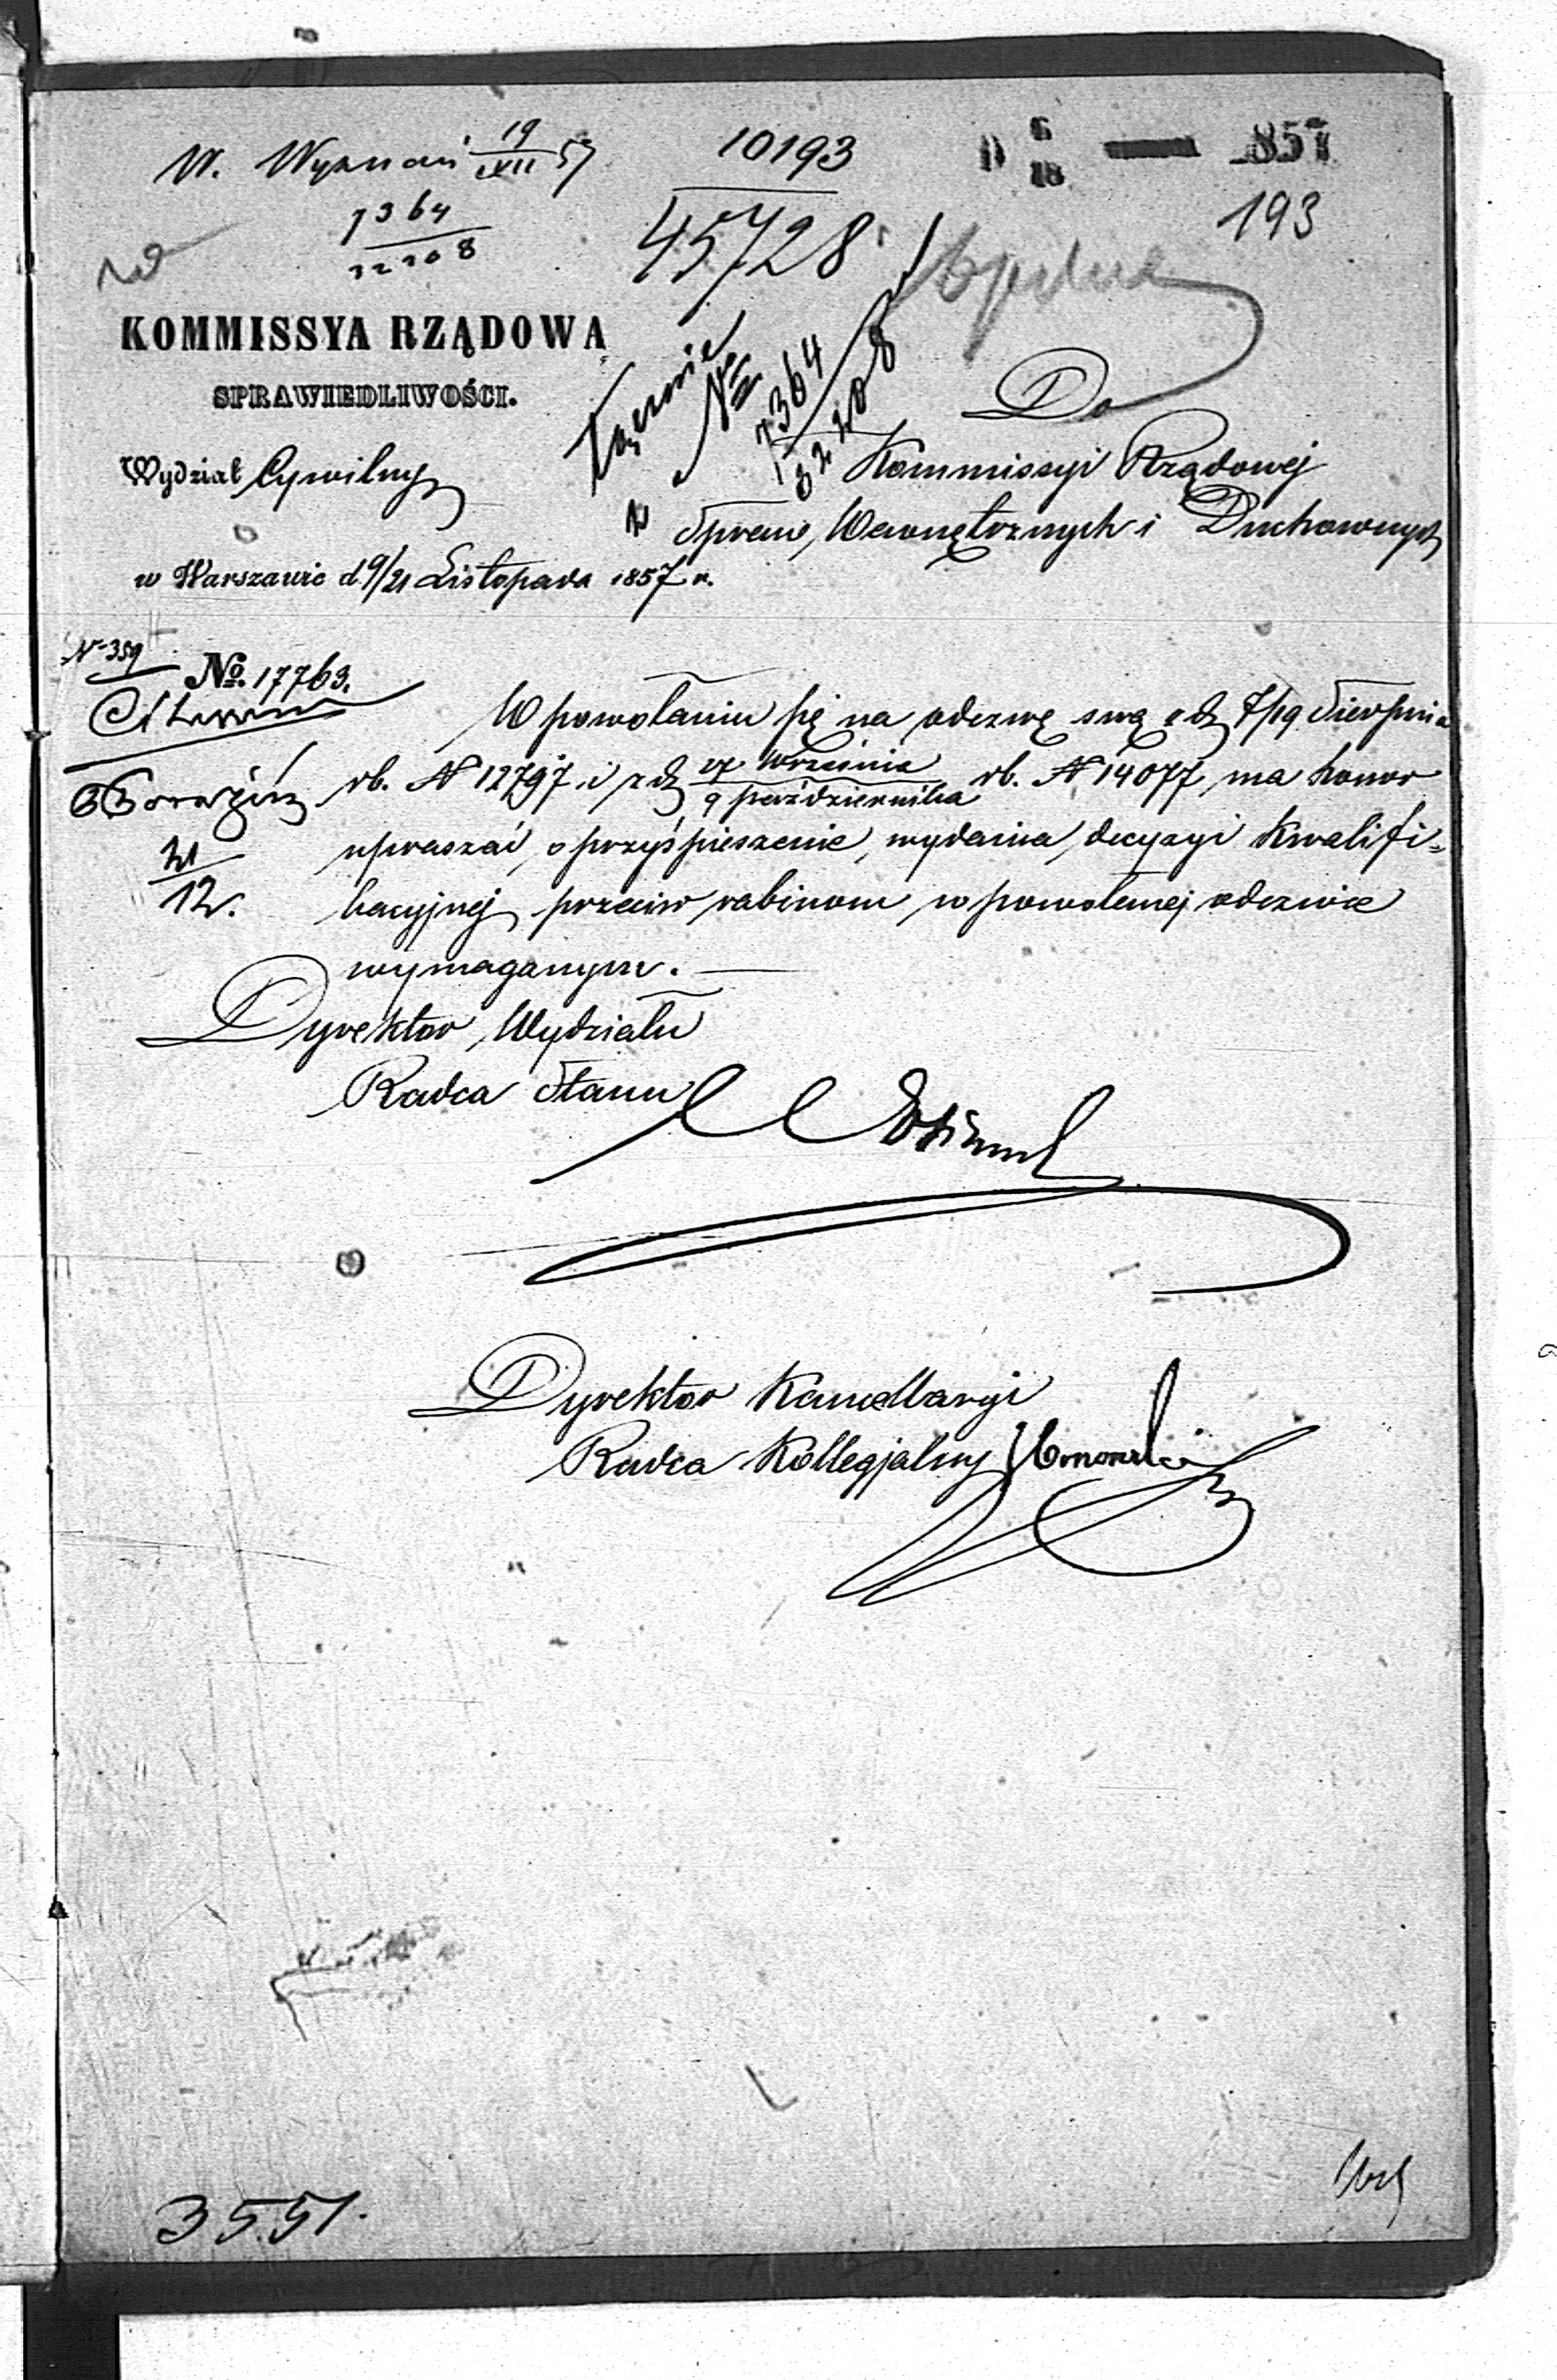 W. Wyznań 19/XII 57
10193
6/18 857
7364
45728
193
KOMMISSYA RZĄDOWA
SPRAWIEDLIWOŚCI.
Łącznie
z NN
7364
32208
Do
Wydział Cywilny
Kommissyi Rządowej
Spraw Wewnętrznych i Duchownych
w Warszawie d 9/21 Listopada 1857 r.
N 359
No. 17763.
W powołaniu się na odezwę swą z d. 7/19 Sierpnia
rb. N 12797 i z d. Września
9 października rb. N 14077, ma honor
upraszać, o przyśpieszenie, wydania decyzyi kwalifi=
kacyjnej, przeciw rabinom w powołanej odezwie
21/12.
wymaganym.
Dyrektor Wydziału
Radca Stanu
Dyrektor Kancellaryi
Radca Kollegjalny
3551.